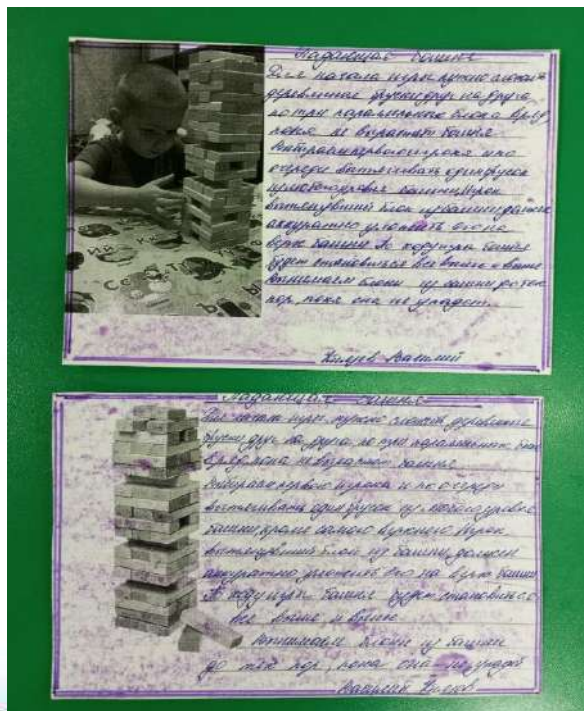 Падающая башня
Для начала игры нужно сложить
деревянные бруски друг на друга
по три параллельных блока в ряд
пока не вырастет башня
первого игрока и по
очереди вытягивать один брусок
из любого уровня башни. Игрок
вытянувший блок из башни должен
аккуратно уложить его на
верх башни. По ходу игры башня
будет становиться все выше и выше
Вынимаем блоки из башни до тех
пор, пока она не упадет.
Василий
Падающая башня
Для начала игры, нужно сложить деревянные
бруски друг на друга по три параллельных
в ряд пока не вырастет башня
первого игрока и по очереди
вытягивать один брусок из любого уровня
башни, кроме самого верхнего. Игрок,
вытянувший блок из башни, должен
аккуратно уложить его на верх башни
По ходу игры башня будет становиться
все выше и выше.
Вынимаем блоки из башни
до тех пор, пока она не
Василий